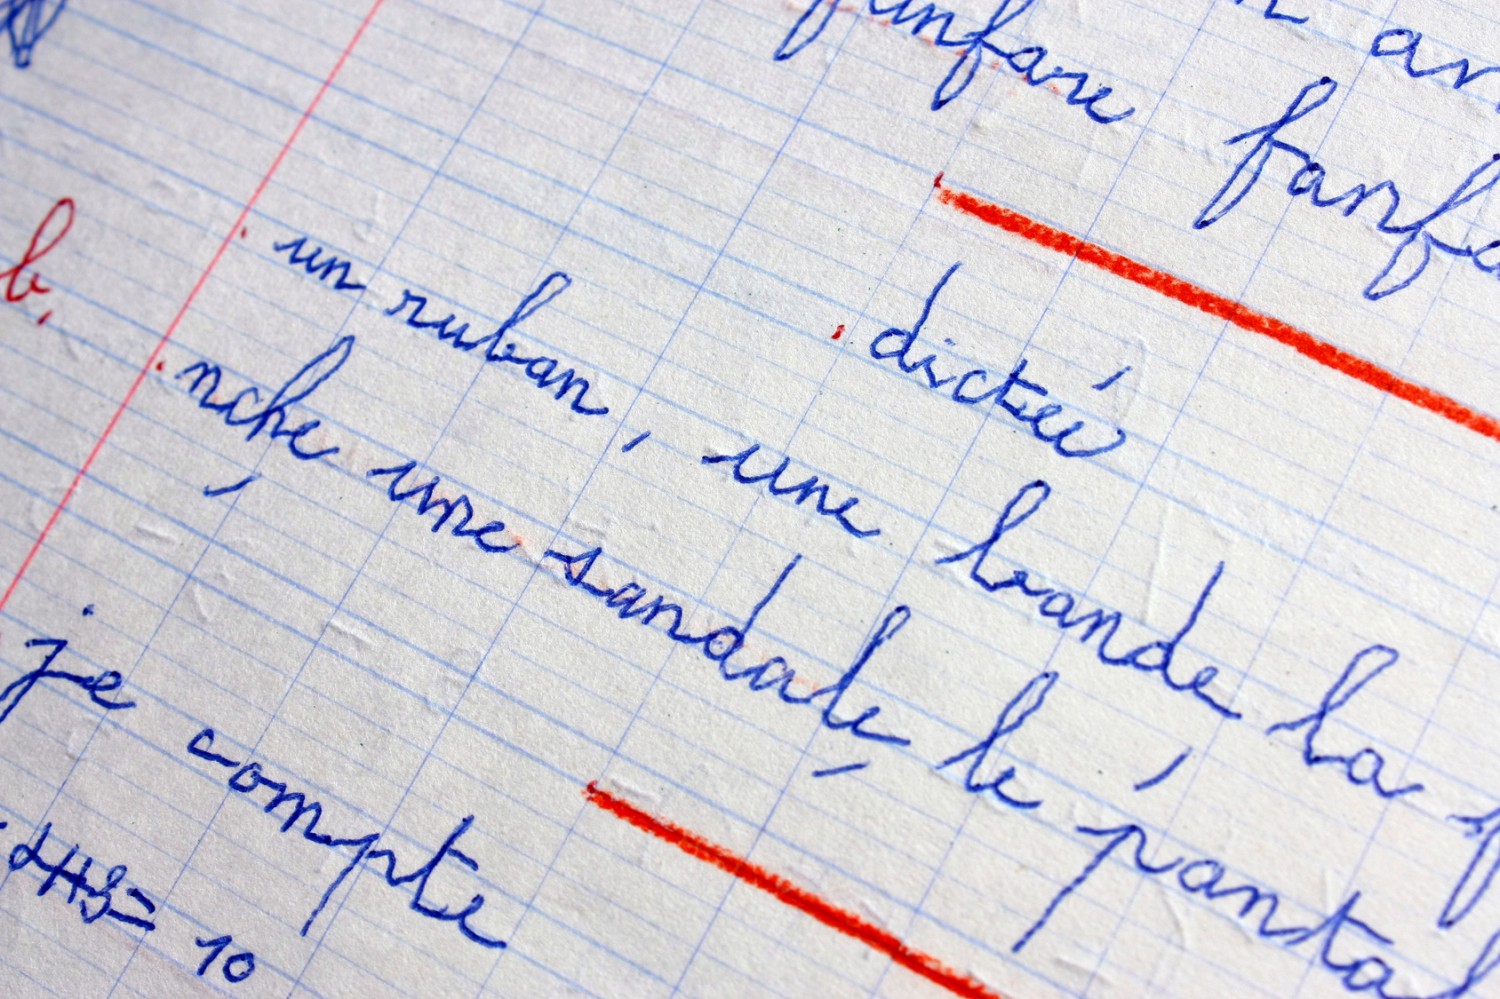 an
fanfare fanf
b.
dictée
un ruban, une bande, la
nche, une sandale, le pantal
je compte
= 10